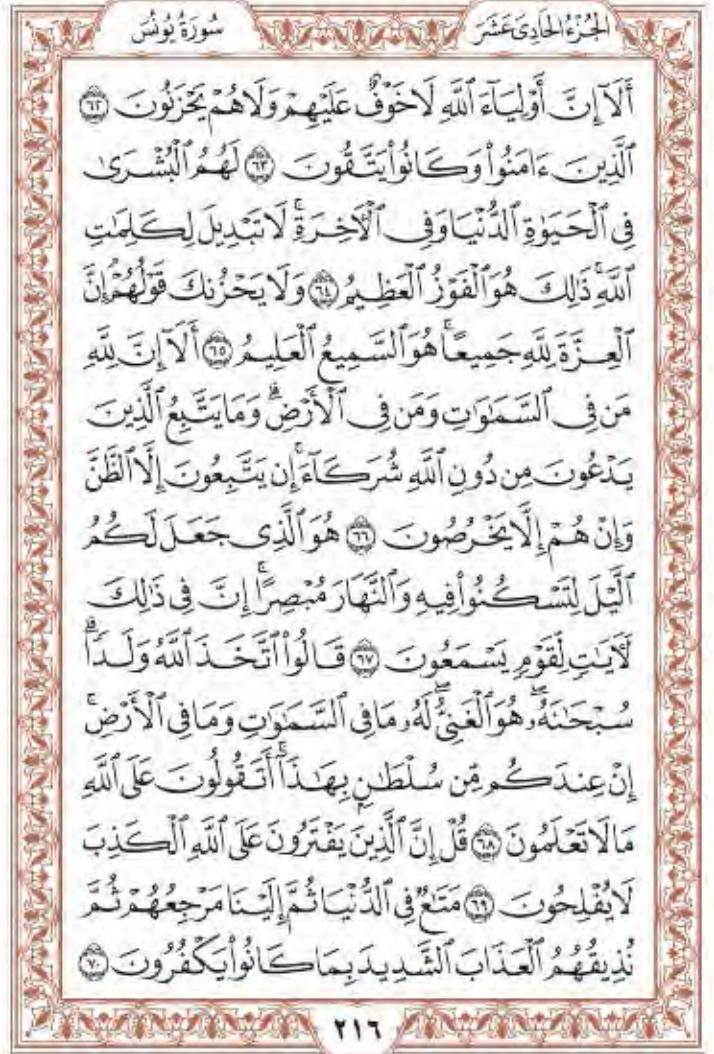 الجُزْءُ الحَادِيَ عَشَرَ
سُورَةُ يُونُسَ
أَلَآ إِنَّ أَوْلِيَآءَ ٱللَّهِ لَا خَوْفٌ عَلَيْهِمْ وَلَا هُمْ يَحْزَنُونَ ٦٢
ٱلَّذِينَ ءَامَنُوا۟ وَكَانُوا۟ يَتَّقُونَ ٦٣ لَهُمُ ٱلْبُشْرَىٰ
فِى ٱلْحَيَوٰةِ ٱلدُّنْيَا وَفِى ٱلْأَخِرَةِ ۚ لَا تَبْدِيلَ لِكَلِمَٰتِ
ٱللَّهِ ۚ ذَٰلِكَ هُوَ ٱلْفَوْزُ ٱلْعَظِيمُ ٦٤ وَلَا يَحْزُنكَ قَوْلُهُمْ ۘ إِنَّ
ٱلْعِزَّةَ لِلَّهِ جَمِيعًا ۚ هُوَ ٱلسَّمِيعُ ٱلْعَلِيمُ ٦٥ أَلَآ إِنَّ لِلَّهِ
مَن فِى ٱلسَّمَٰوَٰتِ وَمَن فِى ٱلْأَرْضِ ۗ وَمَا يَتَّبِعُ ٱلَّذِينَ
يَدْعُونَ مِن دُونِ ٱللَّهِ شُرَكَآءَ ۚ إِن يَتَّبِعُونَ إِلَّا ٱلظَّنَّ
وَإِنْ هُمْ إِلَّا يَخْرُصُونَ ٦٦ هُوَ ٱلَّذِى جَعَلَ لَكُمُ
ٱلَّيْلَ لِتَسْكُنُوا۟ فِيهِ وَٱلنَّهَارَ مُبْصِرًا ۚ إِنَّ فِى ذَٰلِكَ
لَأَيَٰتٍ لِّقَوْمٍ يَسْمَعُونَ ٦٧ قَالُوا۟ ٱتَّخَذَ ٱللَّهُ وَلَدًا ۗ
سُبْحَٰنَهُۥ ۖ هُوَ ٱلْغَنِىُّ ۖ لَهُۥ مَا فِى ٱلسَّمَٰوَٰتِ وَمَا فِى ٱلْأَرْضِ ۚ
إِنْ عِندَكُم مِّن سُلْطَٰنٍۭ بِهَٰذَآ ۚ أَتَقُولُونَ عَلَى ٱللَّهِ
مَا لَا تَعْلَمُونَ ٦٨ قُلْ إِنَّ ٱلَّذِينَ يَفْتَرُونَ عَلَى ٱللَّهِ ٱلْكَذِبَ
لَا يُفْلِحُونَ ٦٩ مَتَٰعٌ فِى ٱلدُّنْيَا ثُمَّ إِلَيْنَا مَرْجِعُهُمْ ثُمَّ
نُذِيقُهُمُ ٱلْعَذَابَ ٱلشَّدِيدَ بِمَا كَانُوا۟ يَكْفُرُونَ ٧٠
٢١٦